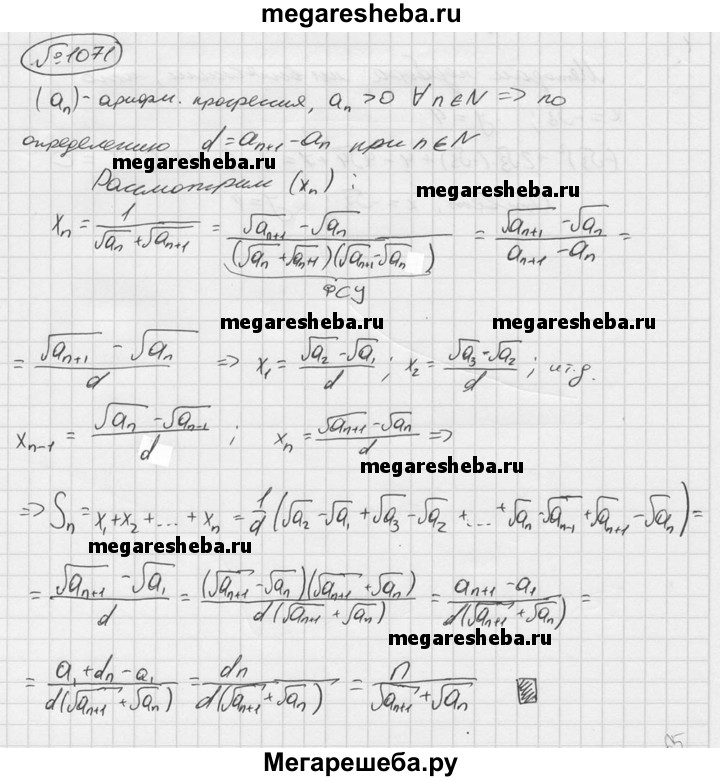 megaresheba.ru
№1071
(aₙ) - арифм. прогрессия, aₙ > 0 ∀ n ∈ N => по
определению d = aₙ₊₁ - aₙ при n ∈ N
megaresheba.ru megaresheba.ru
Рассмотрим (xₙ) :
xₙ = 1/(√aₙ + √aₙ₊₁) = (√aₙ₊₁ - √aₙ)/((√aₙ + √aₙ₊₁)(√aₙ₊₁ - √aₙ)) = (√aₙ₊₁ - √aₙ)/(aₙ₊₁ - aₙ) =
ФСУ
megaresheba.ru megaresheba.ru
= (√aₙ₊₁ - √aₙ)/d => x₁ = (√a₂ - √a₁)/d ; x₂ = (√a₃ - √a₂)/d ; и т.д.
xₙ₋₁ = (√aₙ - √aₙ₋₁)/d ; xₙ = (√aₙ₊₁ - √aₙ)/d =>
megaresheba.ru
=> Sₙ = x₁ + x₂ + ... + xₙ = 1/d (√a₂ - √a₁ + √a₃ - √a₂ + ... + √aₙ - √aₙ₋₁ + √aₙ₊₁ - √aₙ) =
megaresheba.ru
= (√aₙ₊₁ - √a₁)/d = (√aₙ₊₁ - √aₙ)(√aₙ₊₁ + √aₙ)/(d(√aₙ₊₁ + √aₙ)) = (aₙ₊₁ - a₁)/(d(√aₙ₊₁ + √aₙ)) =
megaresheba.ru
= (a₁ + dn - a₁)/(d(√aₙ₊₁ + √aₙ)) = dn/(d(√aₙ₊₁ + √aₙ)) = n/(√aₙ₊₁ + √aₙ)
Мегарешеба.ру